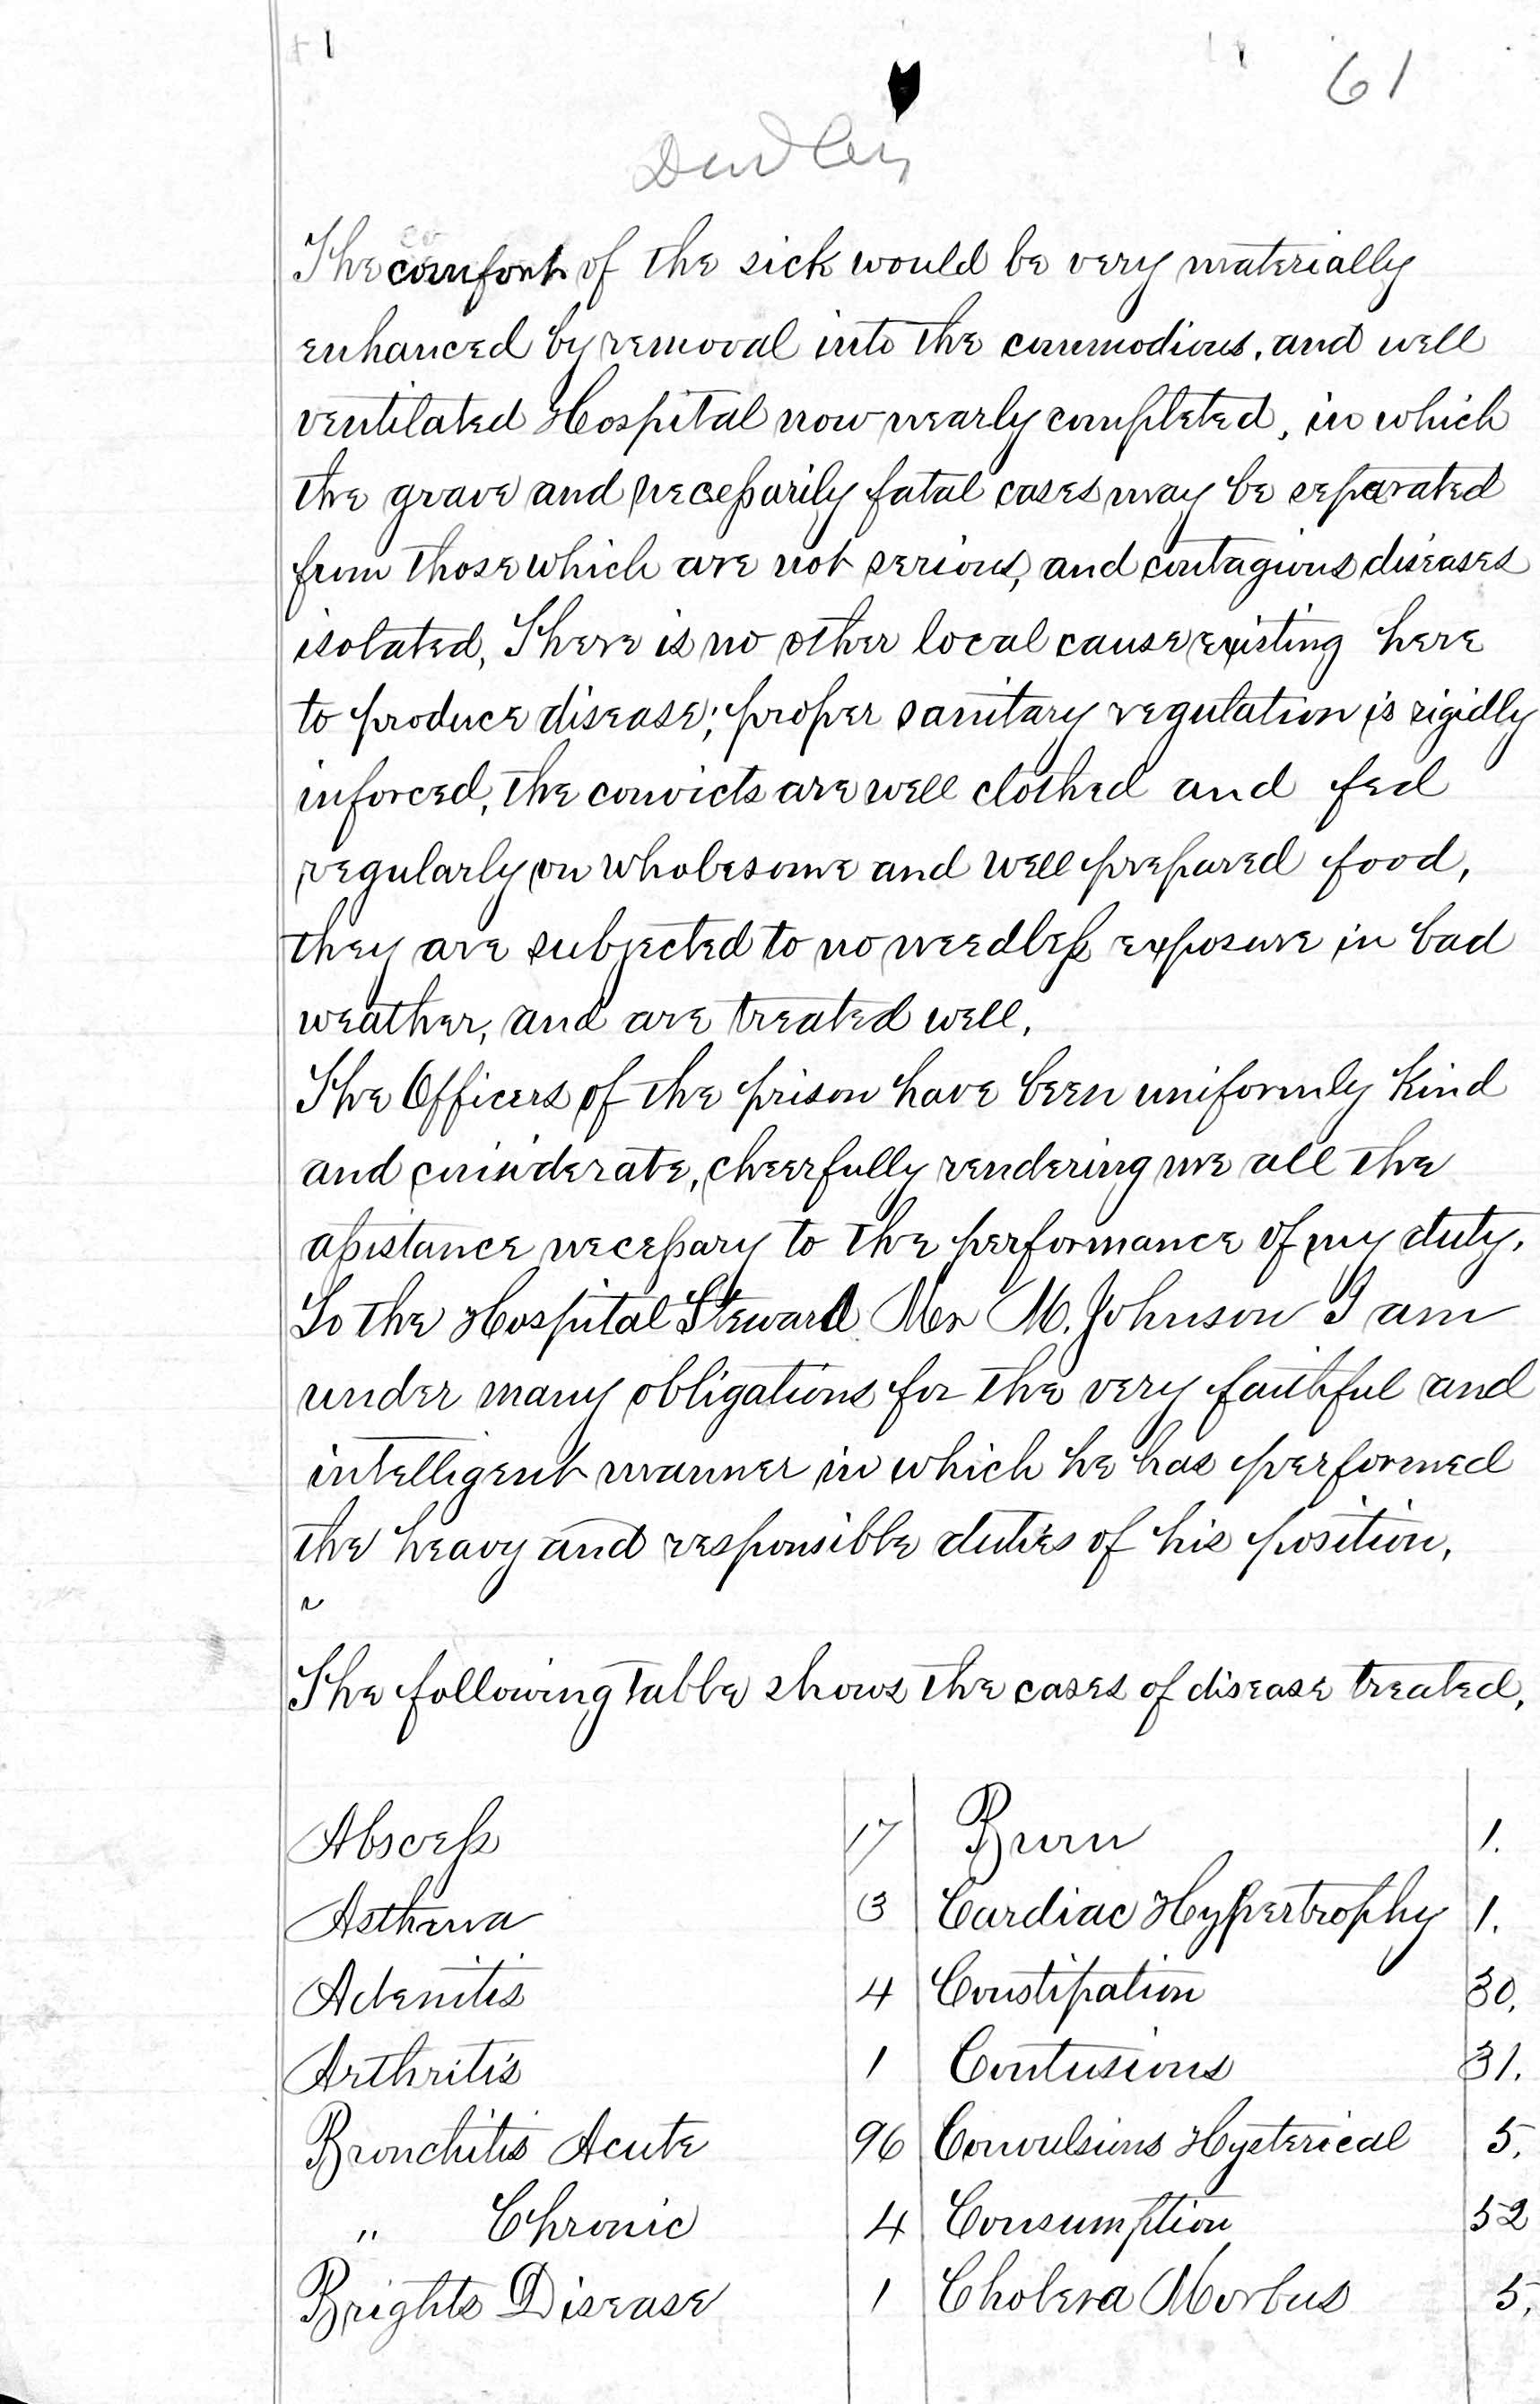 61
Dudley
The comfort of the sick would be very materially
enhanced by removal into the commodious, and well
ventilated Hospital now nearly completed, in which
the grave and necessarily fatal cases may be separated
from those which are not serious, and contagious diseases
isolated, There is no other local cause existing here
to produce disease; proper sanitary regulation is rigidly
inforced, the convicts are well clothed and fed
regularly on wholesome and well prepared food,
they are subjected to no needless exposure in bad
weather, and are treated well.
The Officers of the prison have been uniformly kind
and considerate, cheerfully rendering me all the
assistance necessary to the performance of my duty.
To the Hospital Steward Mr M. Johnson I am
under many obligations for the very faithful and
intelligent manner in which he has performed
the heavy and responsible duties of his position,
The following table shows the cases of disease treated,
Abscess 17 Burn 1.
Asthma 3 Cardiac Hypertrophy 1.
Adenitis 4 Constipation 30.
Arthritis 1 Contusions 31.
Bronchitis Acute 96 Convulsions Hysterical 5.
" Chronic 4 Consumption 52
Brights Disease 1 Cholera Morbus 5.